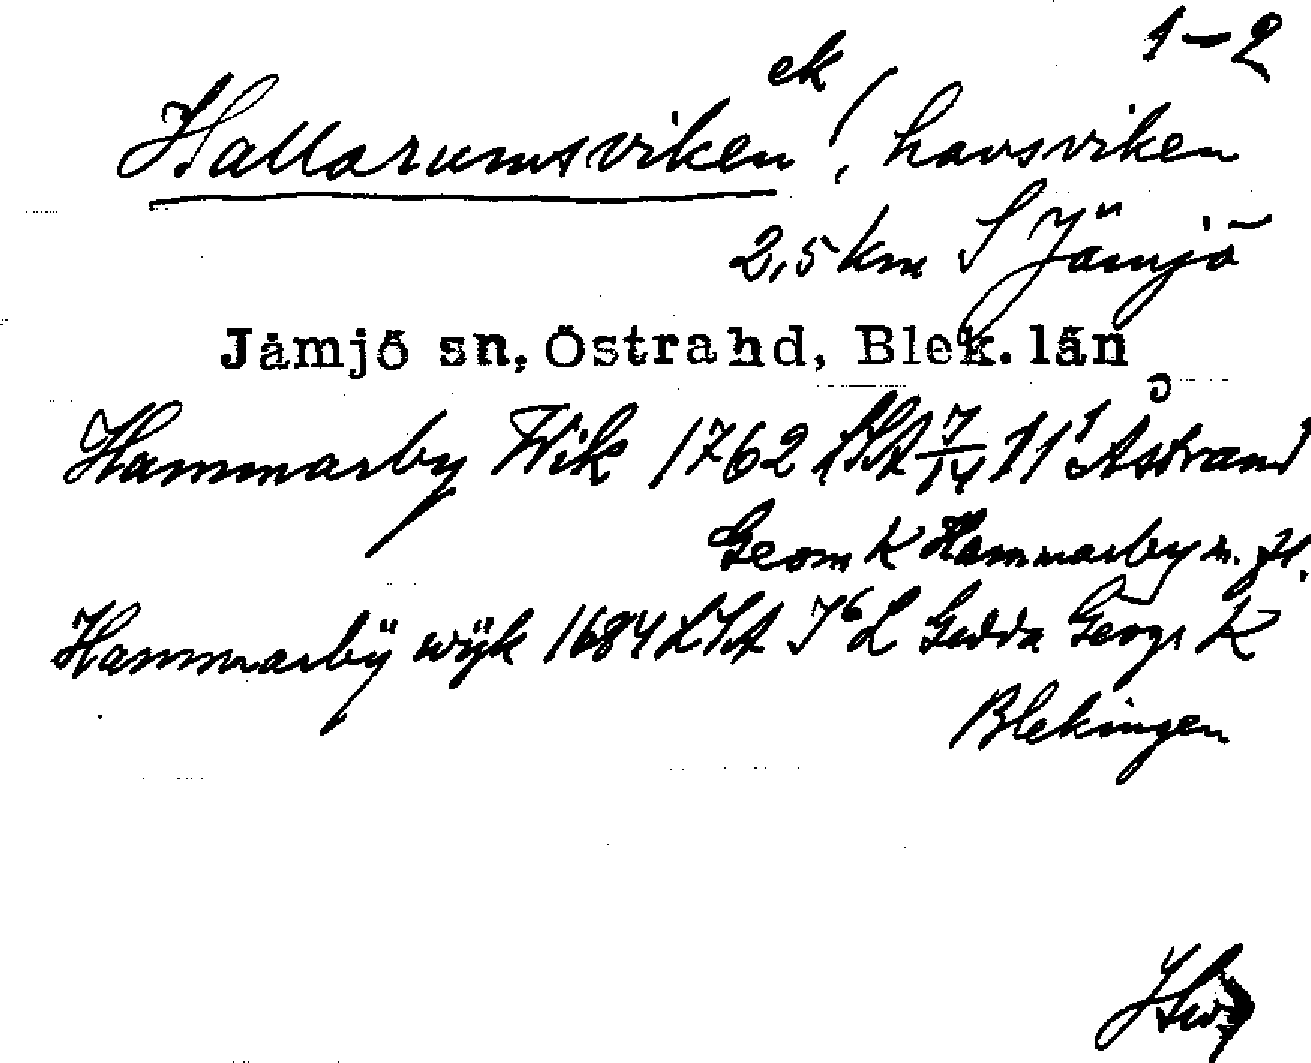 1-2
ek
Hallarumsviken, havsviken
2,5 km S Jämjö
Jämjö sn, Östra hd, Blek. län
Hammarby Wik 1762 LSA Åstrand
Geom K Hammarby
Hammarbÿ wÿk 1684 LSA J6 L Gedda Geogr K
Blekingen